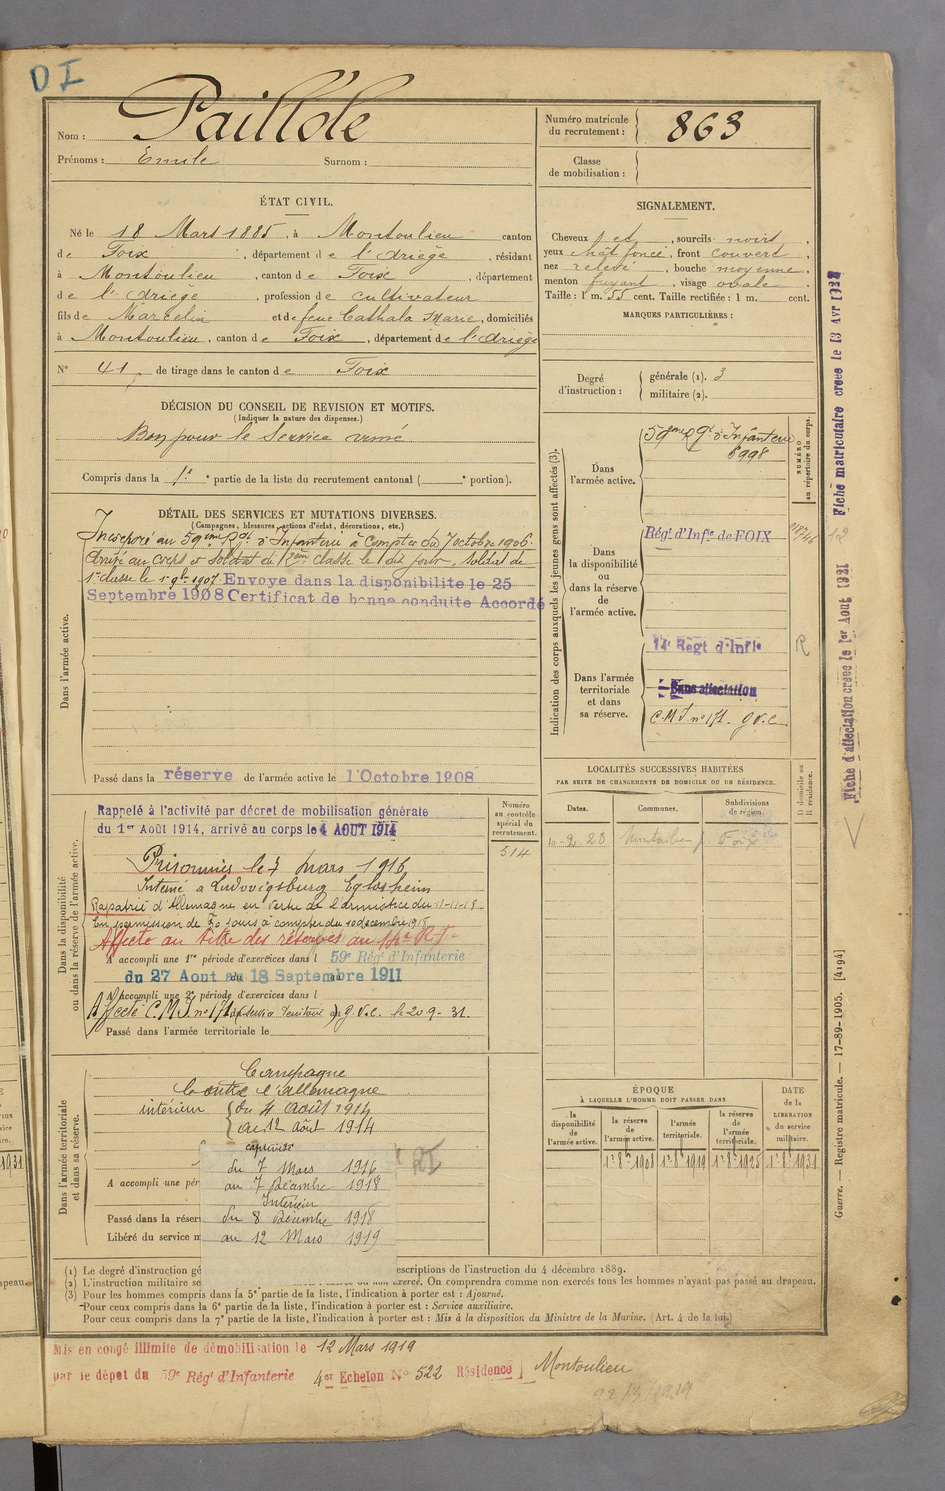 DI
Nom : Paillole
Prénoms : Emile Surnom :
Numéro matricule du recrutement : 863
Classe de mobilisation :
ÉTAT CIVIL.
Né le 18 Mars 1885, à Montoulieu canton
de Foix, département de l'Ariège, résidant
à Montoulieu, canton de Foix, département
de l'Ariège, profession de cultivateur
fils de Marcelin et de feue Cathala Marie, domiciliés
à Montoulieu, canton de Foix, département de l'Ariège
N° 41, de tirage dans le canton de Foix
SIGNALEMENT.
Cheveux , sourcils noirs,
yeux chât foncé, front couvert,
nez relevé, bouche moyenne,
menton fuyant, visage ovale.
Taille : 1 m. 55 cent. Taille rectifiée : 1 m. cent.
MARQUES PARTICULIÈRES :
Degré d'instruction : générale (1). 3
militaire (2).
DÉCISION DU CONSEIL DE REVISION ET MOTIFS.
(Indiquer la nature des dispenses.)
Bon pour le Service armé
Compris dans la 1e partie de la liste du recrutement cantonal ( e portion).
DÉTAIL DES SERVICES ET MUTATIONS DIVERSES.
(Campagnes, blessures, actions d'éclat, décorations, etc.)
Dans l'armée active.
Incorporé au 59eme Rgt d'Infanterie à Compter du 7 octobre 1906.
Arrivé au corps et Soldat de 2eme classe le dit jour, soldat de
1e classe le 1 9bre 1907 Envoye dans la disponibilite le 25
Septembre 1908 Certificat de bonne conduite Accordé
Passé dans la réserve de l'armée active le 1 Octobre 1908
Indication des corps auxquels les jeunes gens sont affectés (3).
NUMÉRO au répertoire du corps.
Dans l'armée active.
59eme Rgt d'Infanterie
8998
Dans la disponibilité ou dans la réserve de l'armée active.
Régt d'Infie de FOIX
Dans l'armée territoriale et dans sa réserve.
14e Régt d'Infie
R
Sans affectation
C.M.I n° 171. G.V.C
LOCALITÉS SUCCESSIVES HABITÉES
PAR SUITE DE CHANGEMENTS DE DOMICILE OU DE RÉSIDENCE.
Dates. Communes. Subdivisions de région. D. domicile ou R. résidence.
Montoulieu Foix
Dans la disponibilité ou dans la réserve de l'armée active.
Numéro au contrôle spécial du recrutement.
514
Rappelé à l'activité par décret de mobilisation générale
du 1er Août 1914, arrivé au corps le 4 AOUT 1914
Prisonnier le 7 mars 1916
Interné a Ludwigsburg Eglosheim
Rapatrié d'Allemagne en vertu de l'armistice du 11-11-18
En permission de 30 jours à compter du 10 décembre 1918
Affecté au titre des réserves au 14e R.I.
A accompli une 1re période d'exercices dans l 59e Régt d'Infanterie
du 27 Aout au 18 Septembre 1911
A accompli une 2e période d'exercices dans l
Affecté C.M.I n° 171 G.V.C. le 20 9- 31.
Passé dans l'armée territoriale le
Dans l'armée territoriale et dans sa réserve.
Campagne
Contre l'Allemagne
intérieur du 4 août 1914
au 12 Août 1914
captivité
du 7 Mars 1916
A accompli une pér
au 7 Décembre 1918
Intérieur
Passé dans la réser
du 8 Décembre 1918
Libéré du service m
au 12 Mars 1919
RI
ÉPOQUE
À LAQUELLE L'HOMME DOIT PASSER DANS
la disponibilité de l'armée active. la réserve de l'armée active. l'armée territoriale. la réserve de l'armée territoriale.
DATE de la LIBÉRATION du service militaire.
1er 8bre 1908 1er 8bre 1919 1er 8bre 1925 1er 8bre 1931
(1) Le degré d'instruction gé escriptions de l'instruction du 4 décembre 1889.
(2) L'instruction militaire se ou non exercé. On comprendra comme non exercés tous les hommes n'ayant pas passé au drapeau.
(3) Pour les hommes compris dans la 5e partie de la liste, l'indication à porter est : Ajourné.
Pour ceux compris dans la 6e partie de la liste, l'indication à porter est : Service auxiliaire.
Pour ceux compris dans la 7e partie de la liste, l'indication à porter est : Mis à la disposition du Ministre de la Marine. (Art. 4 de la loi.)
Mis en congé illimité de démobilisation le 12 Mars 1919
par le dépot du 59e Régt d'Infanterie 4er Echelon N° 522 Résidence Montoulieu
22/3/1919
Fiche matriculaire créée le 13 Avr 1922
Fiche d'affectation créée le 1er Aout 1921
Guerre. — Registre matricule. — 17-89-1905. [4194]